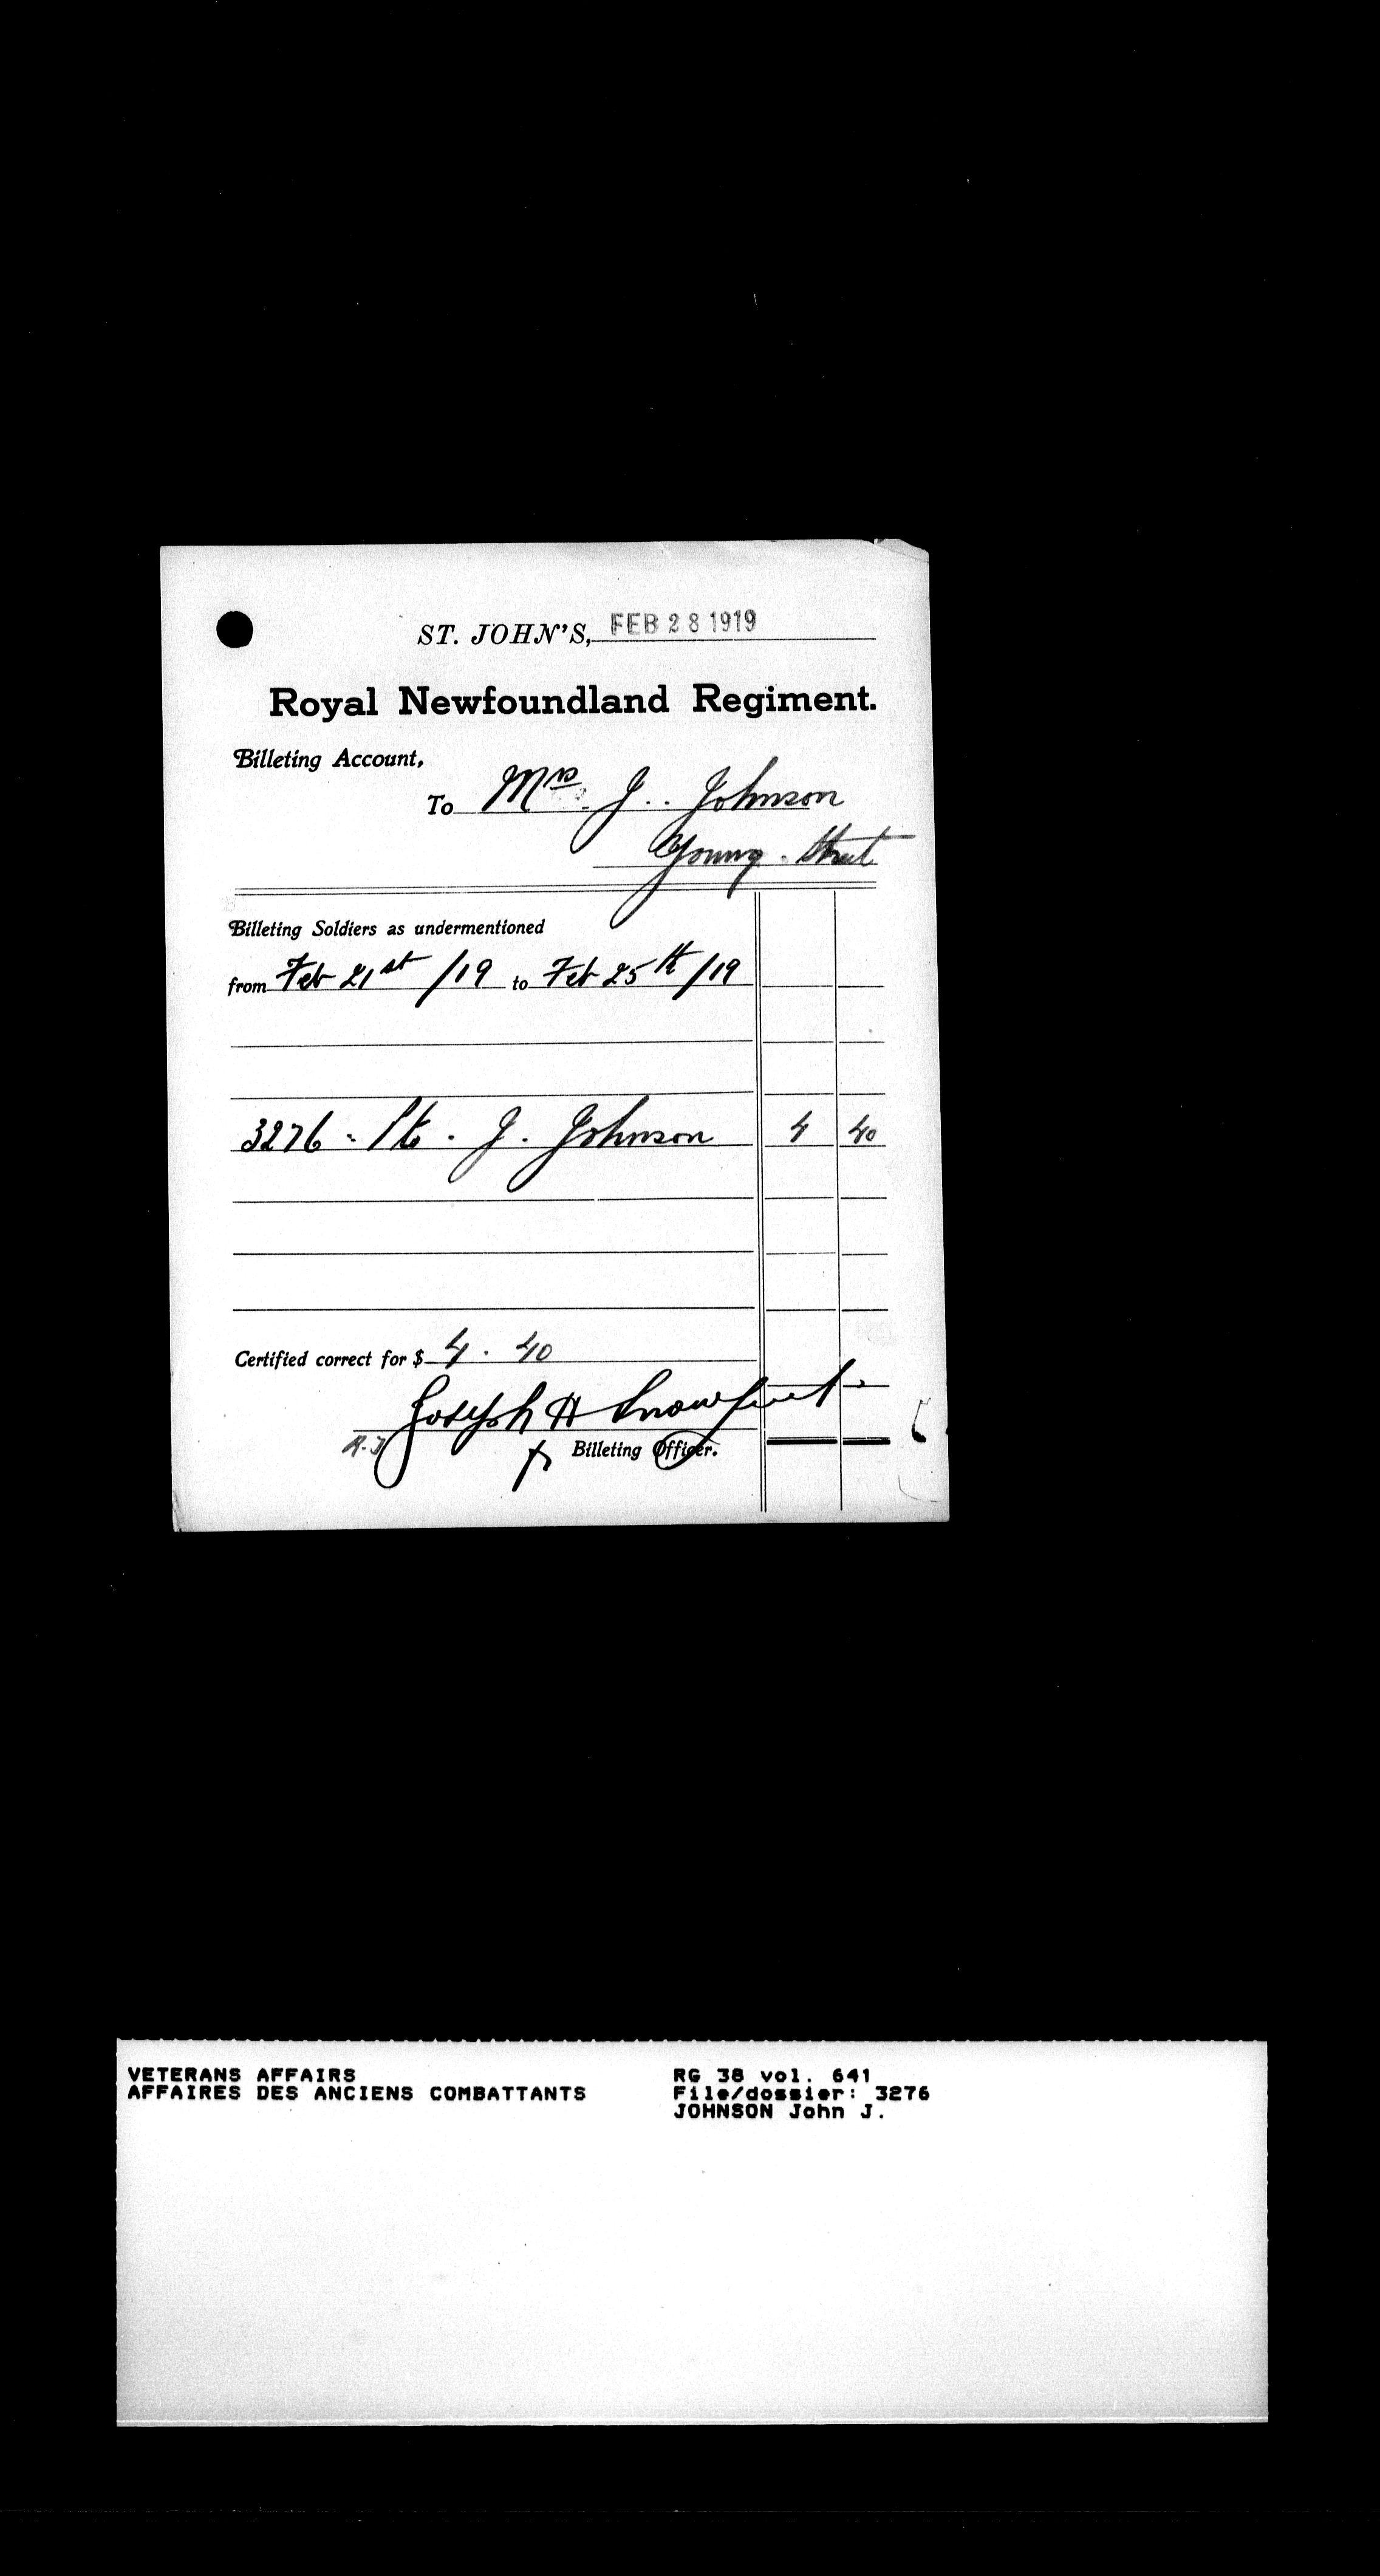 ST. JOHN'S, FEB 28 1919
Royal Newfoundland Regiment.
Billeting Account,
To Mrs. J. Johnson
Young Street
Billeting Soldiers as undermentioned
from Feb 21st /19 to Feb 25th /19
3276 - Pte. J. Johnson 4 40
Certified correct for $ 4. 40
Joseph H
Billeting Officer.
VETERANS AFFAIRS
AFFAIRES DES ANCIENS COMBATTANTS
RG 38 vol. 641
File/dossier: 3276
JOHNSON John J.